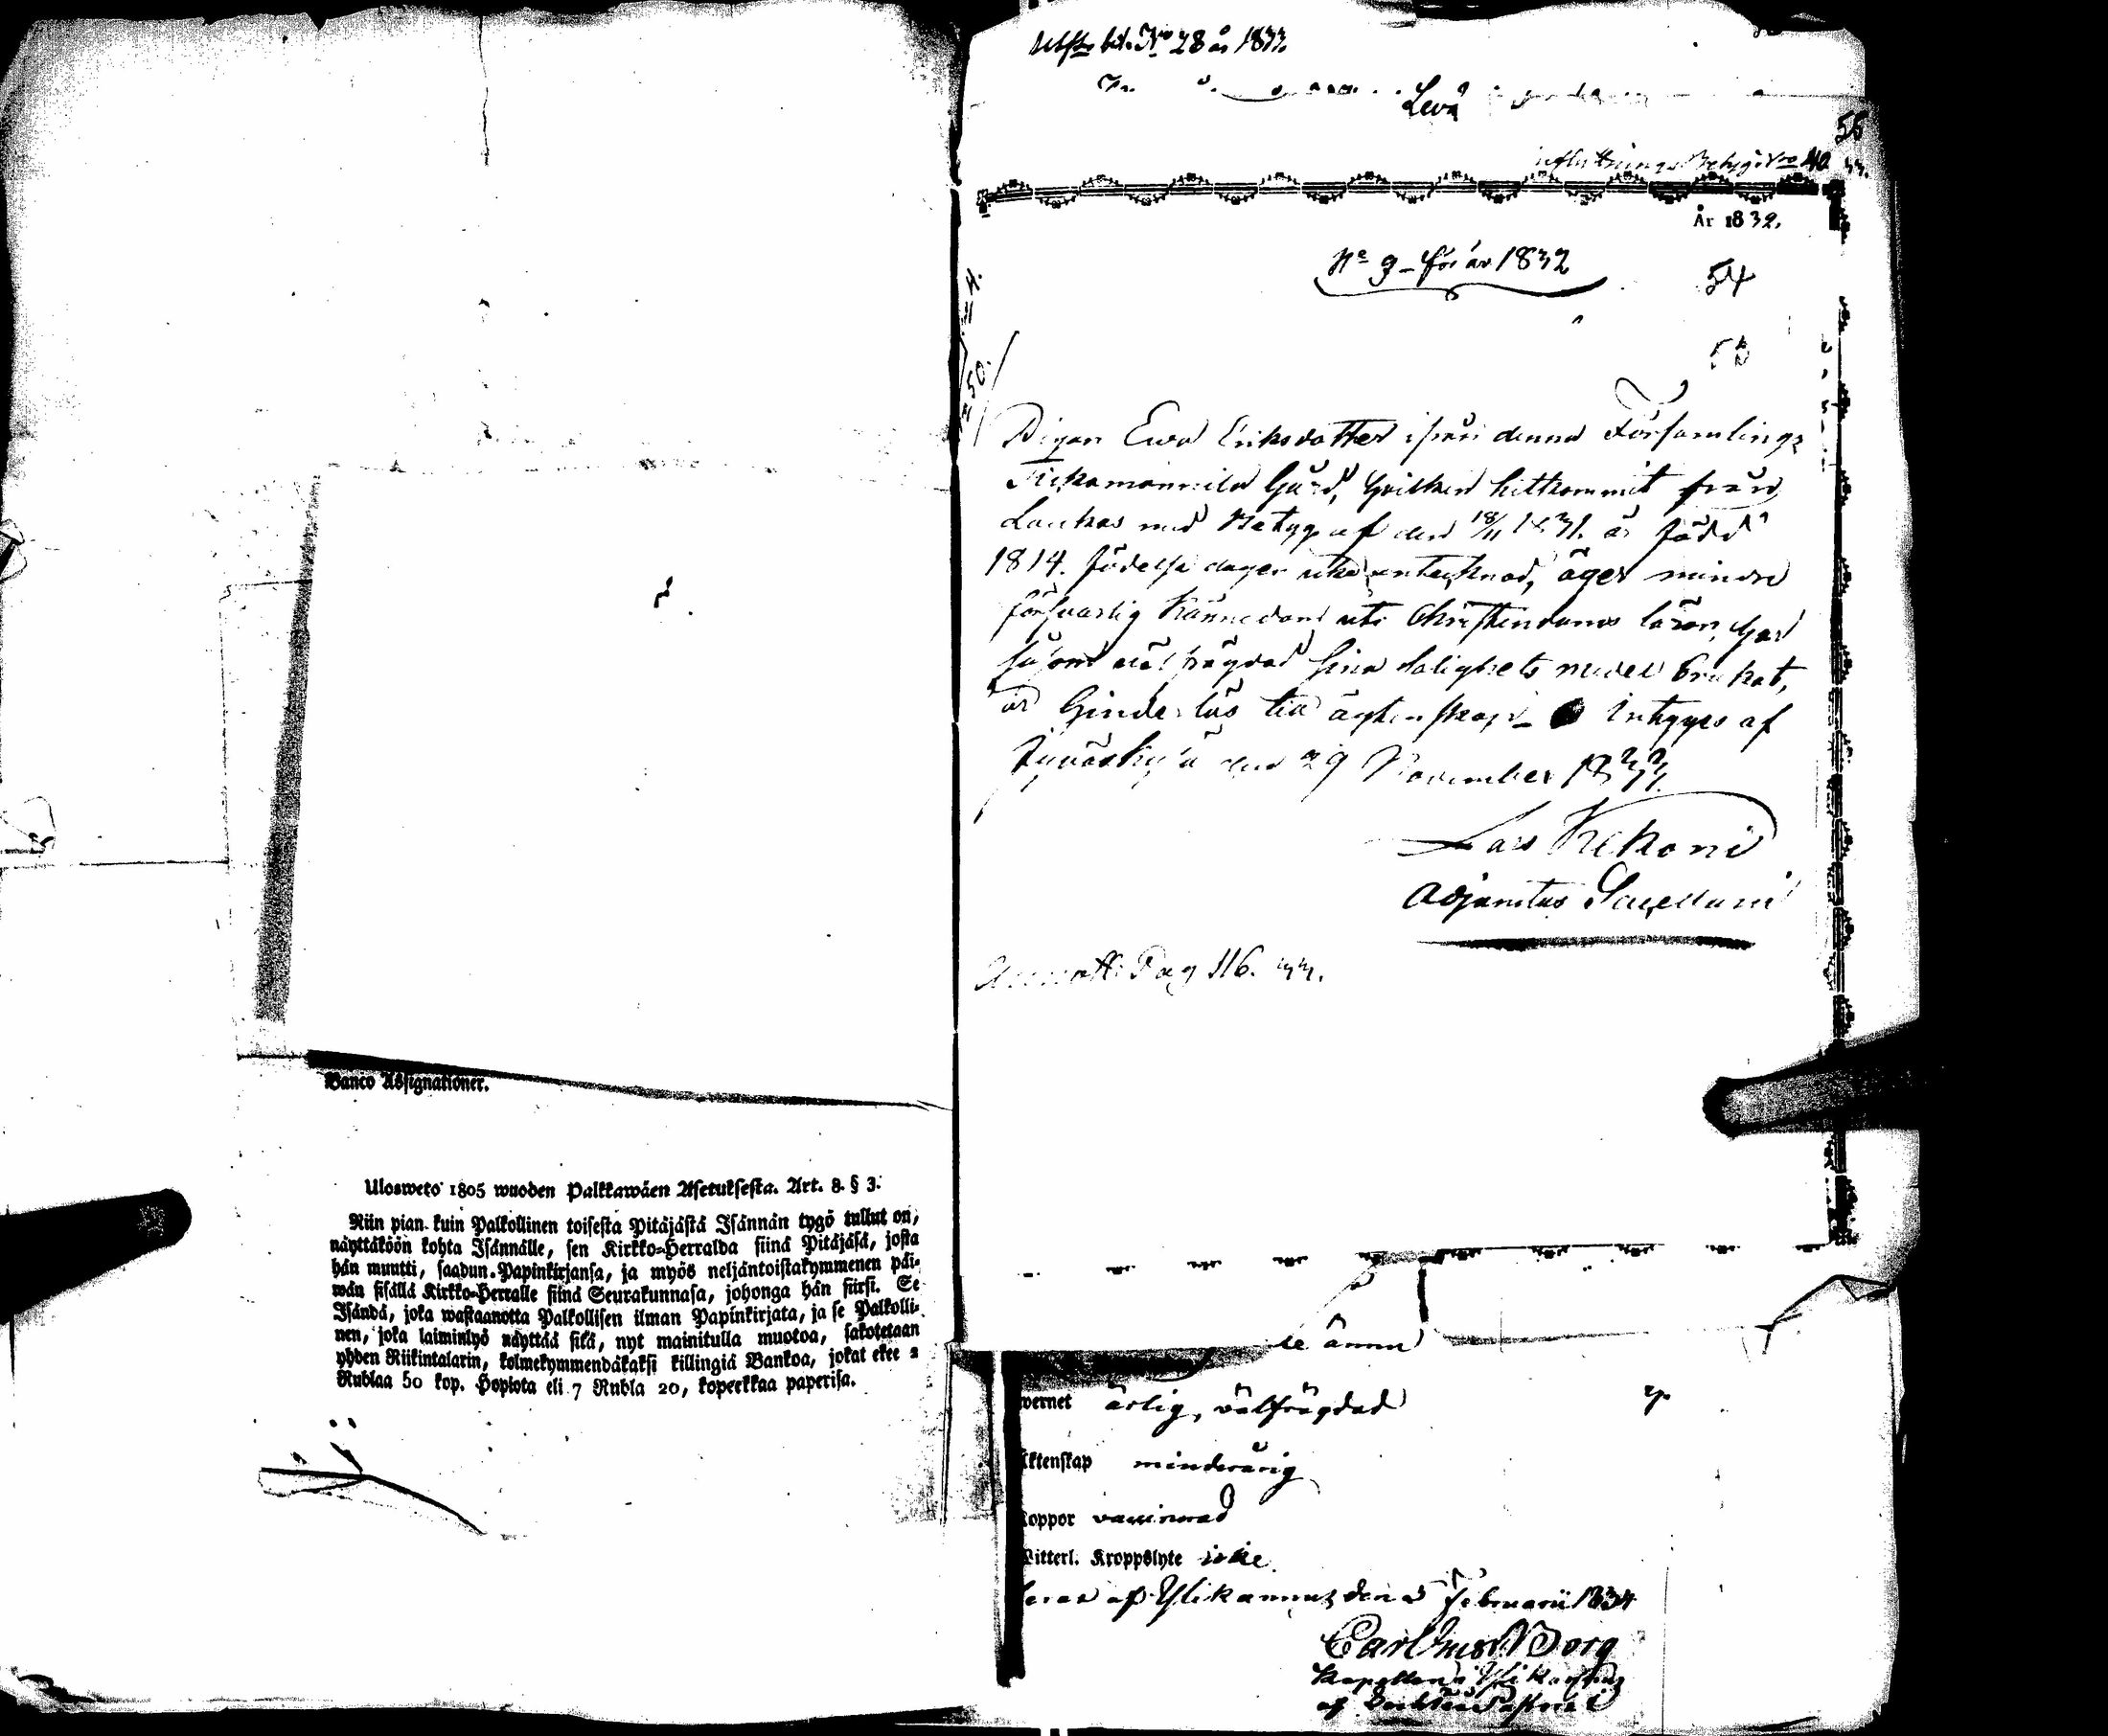 Banco Assignationer.
Ulosweto 1805 wuoden Palkkawäen Asetuksesta. Art. 8. § 3.
Niin pian kuin Palkollinen toisesta Pitäjästä Isännän tygö tullut on,
näyttäköön kohta Isännälle, sen Kirkko-Herralda siinä Pitäjäsä, josta
hän muutti, saadun Papinkirjansa, ja myös neljäntoistakymmenen päi-
wän sisällä Kirkko-Herralle siinä Seurakunnasa, johonga hän siirsi. Se
Isändä, joka wastaanotta Palkollisen ilman Papinkirjata, ja se Palkolli-
nen, joka laiminlyö näyttää sitä, nyt mainitulla muotoa, sakotetaan
yhden Riikintalarin, kolmekymmendäkaksi killingiä Bankoa, jotka ekee 2
Rublaa 50 kop. Hopiota eli 7 Rubla 20, kopeekkaa paperisa.
bet. No 28 år 1833.
Levä
55
Betyg No 40 33.
År 1832.
No 9 för år 1832
54
50.
Pigan Eva Eriksdotter ifrån denna Församlings
Tickamannila Gård, hvilken hitkommit från
Laukas med Betyg af den 18/11 1831. är född
1814. födelse dagen icke antecknad, äger mindre
försvarlig kännedom uti Christendoms läran, har
såsom välfrägdad sina salighets medel brukat,
är hinderlös till äktenskap - intygas af
Jyväskylä den 29 November 1832.
Lars Kekoni
Adjunctus Sacellani
Pag 116. 33.
le ämne
wernet ärlig, välfrägdad
ktenskap minderårig
oppor vaccinerad
itterl. Kroppslyte icke
teras af Ylikannus den 5 Februarii 1834
Carl Gust. Borg
Kapellan i Ylikannus
af